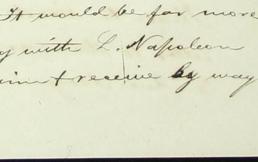 It would be far more
with L. Napoleon
& receive by way